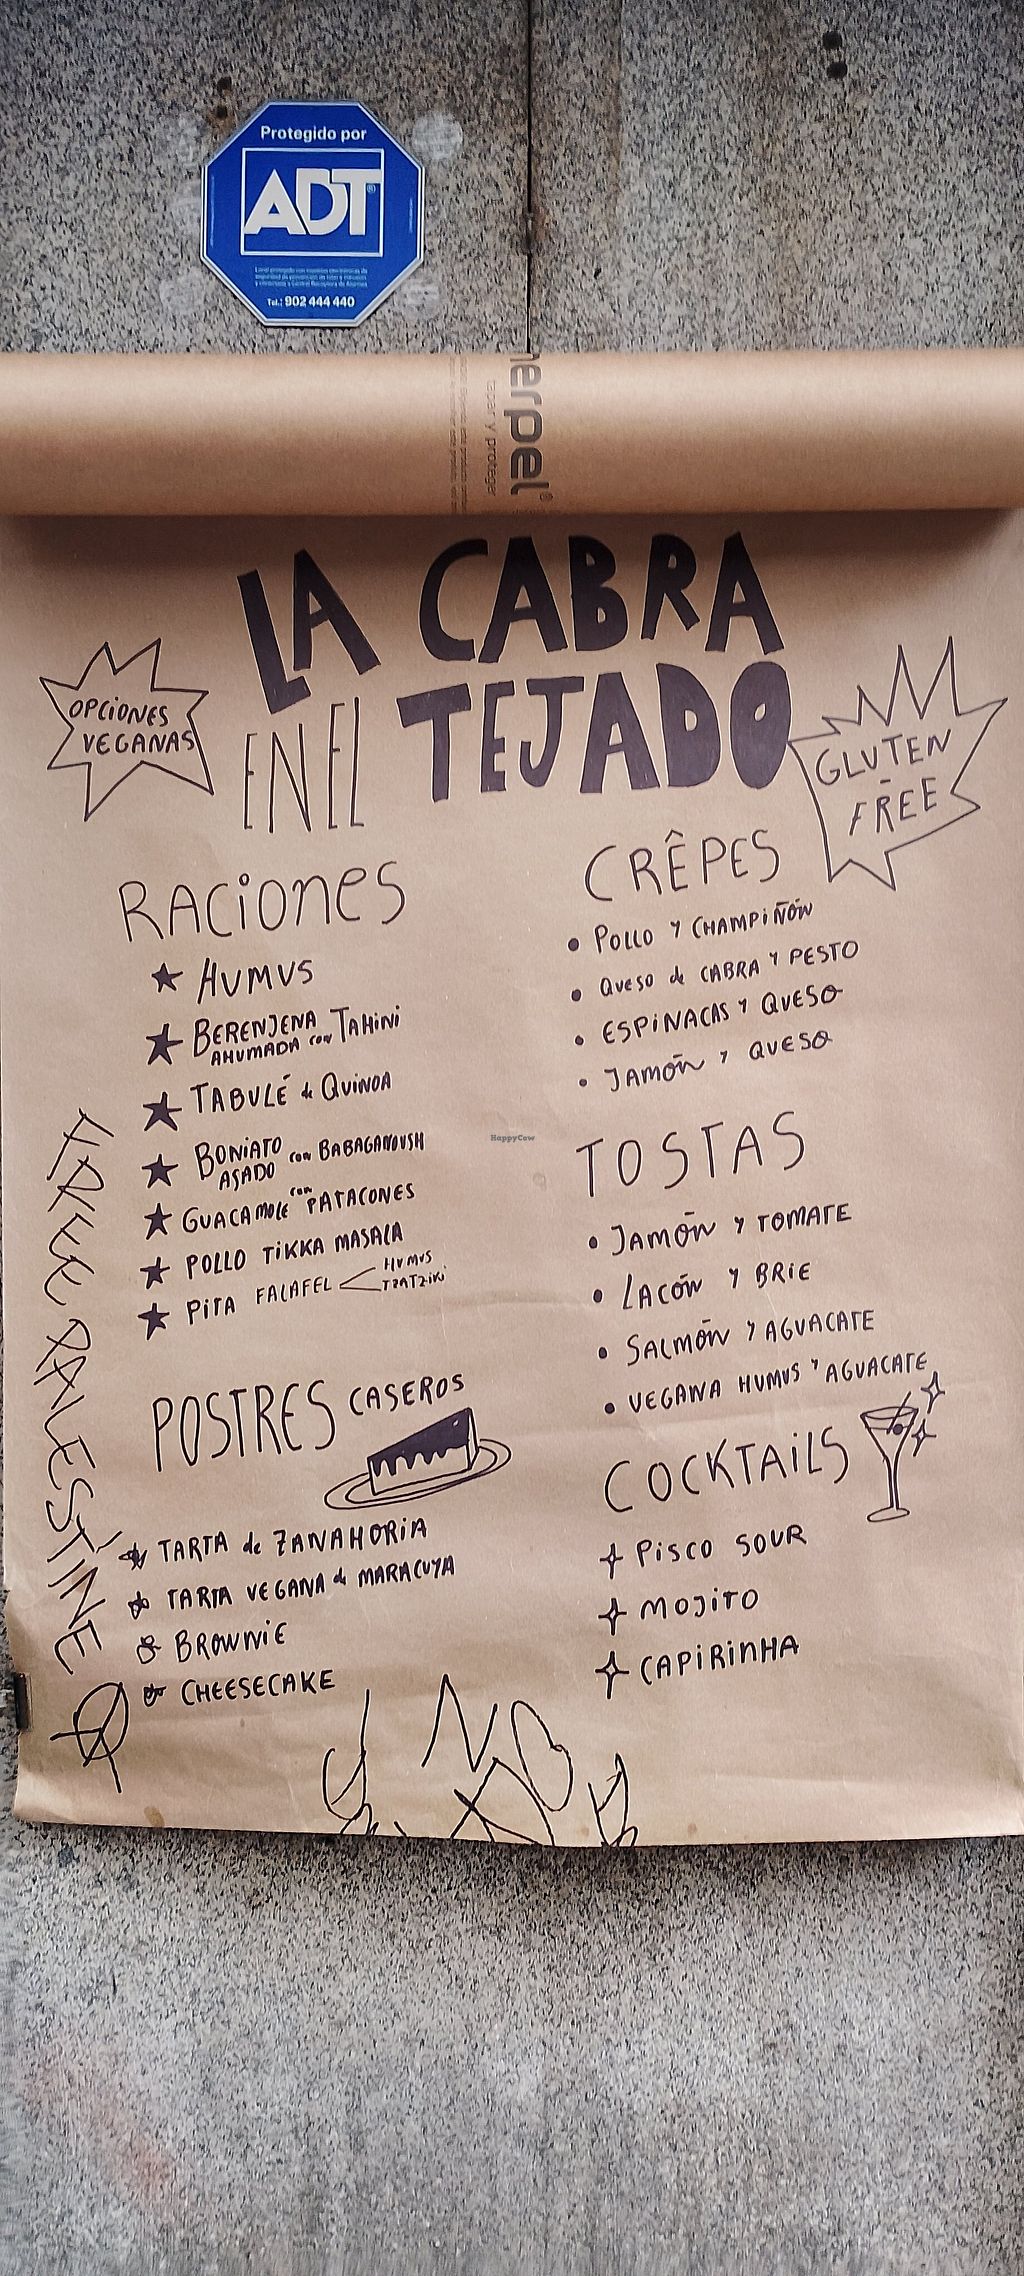 Protegido por
ADT®
Tel.: 902 444 440
erpel®
tapar y proteger
LA CABRA
EN EL TEJADO
OPCIONES
VEGANAS
GLUTEN
-
FREE
RACIONES
HUMUS
BERENJENA
AHUMADA con TAHINI
TABULÉ de QUINOA
BONIATO
ASADO con BABAGANOUSH
GUACAMOLE con PATACONES
POLLO TIKKA MASALA
PITA FALAFEL
HUMUS
TZATZIKI
POSTRES CASEROS
TARTA de ZANAHORIA
TARTA VEGANA de MARACUYA
BROWNIE
CHEESECAKE
CRÊPES
POLLO Y CHAMPIÑÓN
QUESO de CABRA Y PESTO
ESPINACAS Y QUESO
JAMÓN Y QUESO
TOSTAS
JAMÓN Y TOMATE
LACÓN Y BRIE
SALMÓN Y AGUACATE
VEGANA HUMUS Y AGUACATE
COCKTAILS
PISCO SOUR
MOJITO
CAPIRINHA
FREE PALESTINE
HappyCow